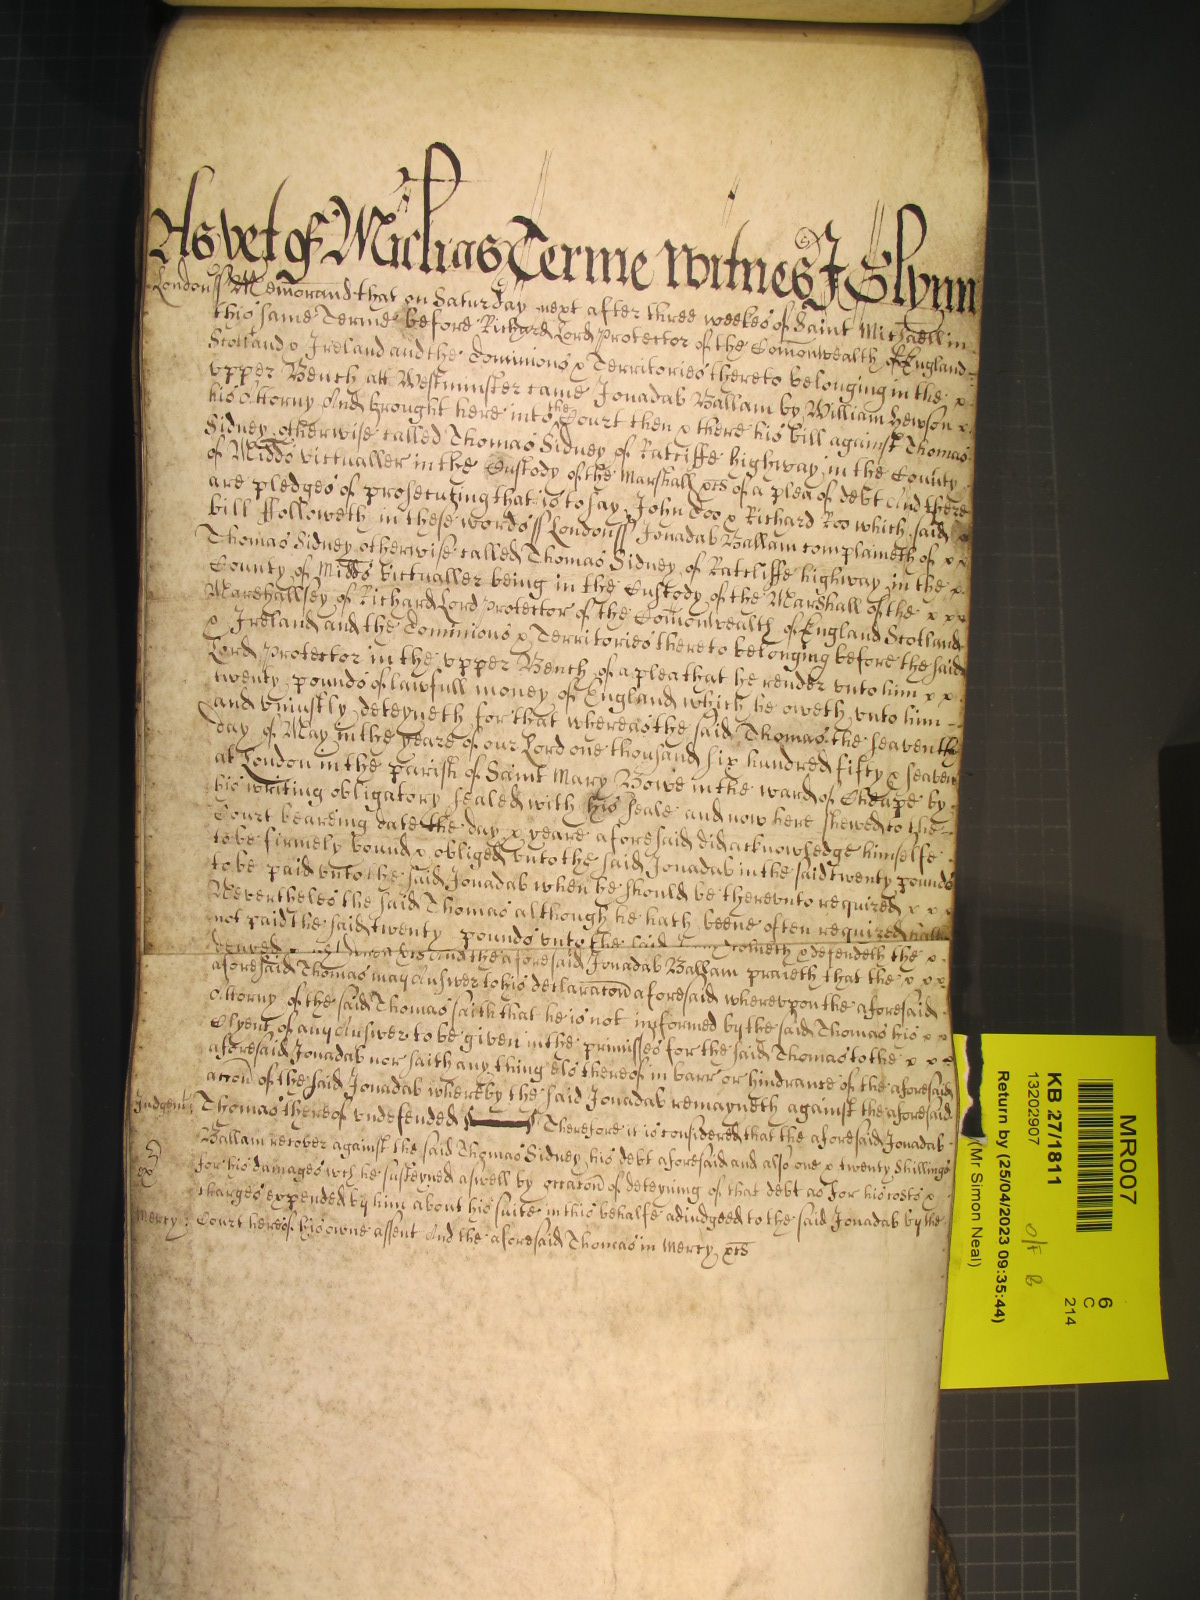 As yet of Michas Terme Witnes J Glynn
London ss Memorand that on Saturday next after three weekes of Saint Michaell in
this same Terme before Richard Lord Protector of the Comonwealth of England
Scotland & Ireland and the Dominions & Territories thereto belonging in the x
vpper Bench att Westminster came Jonadab Ballam by William Hewson x
his Attorny And brought here into the Court then & there his bill against Thomas
Sidney otherwise called Thomas Sidney of Ratcliffe highway in the County
of Midds victualler in the Custody of the Marshall &cs of a plea of debt And there
are pledges of prosecuting that is to say John Doo & Richard Roo which said
bill ffolloweth in these words ss London ss Jonadab Ballam complaineth of x x
Thomas Sidney otherwise called Thomas Sidney of Ratcliffe highway in the x
County of Midds victualler being in the Custody of the Marshall of the x x x
Marshallsey of Richard Lord Protector of the Comonwealth of England Scotland
& Ireland and the Dominions & Territories thereto belonging before the said
Lord Protector in the vpper Bench of a plea that he render vnto him x x
twenty pounds of lawfull money of England which he oweth vnto him
and vniustly deteyneth for that whereas the said Thomas the seaventh
day of May in the yeare of our Lord one thousand six hundred fifty & seaven
at London in the parish of Saint Mary Bowe in the ward of Cheape by
his writing obligatory sealed with his seale and now here shewed to the
Court bearing date the day & yeare aforesaid did acknowledge himselfe
to be firmely bound & obliged vnto the said Jonadab in the said twenty pounds
to be paid vnto the said Jonadab when he should be therevnto required x x x
Nevertheles the said Thomas although he hath beene often required
not paid the said twenty pounds vnto the said
cometh & defendeth the x
And the aforesaid Jonadab Ballam praieth that the x x x
aforesaid Thomas may Answer to his declaracon aforesaid wherevpon the aforesaid
Attorny of the said Thomas saith that he is not informed by the said Thomas his x x
Clyent of any Answer to be given in the primisses for the said Thomas to the x x x
aforesaid Jonadab nor saith any thing els thereof in barr or hindrance of the aforesaid
accon of the said Jonadab whereby the said Jonadab remayneth against the aforesaid
Judgemt: Thomas thereof vndefended Therefore it is considered that the aforesaid Jonadab
Ballam recover against the said Thomas Sidney his debt aforesaid and also one & twenty shillings
for his damages wch he susteyned aswell by occacon of deteyning of that debt as for his costs &
charges expended by him about his suite in this behalfe adiudged to the said Jonadab by the
Mercy: Court here of his owne assent And the aforesaid Thomas in Mercy &cs
MR007
KB 27/1811
13202907
Return by (25/04/2023 09:35:44)
(Mr Simon Neal)
6
C
214